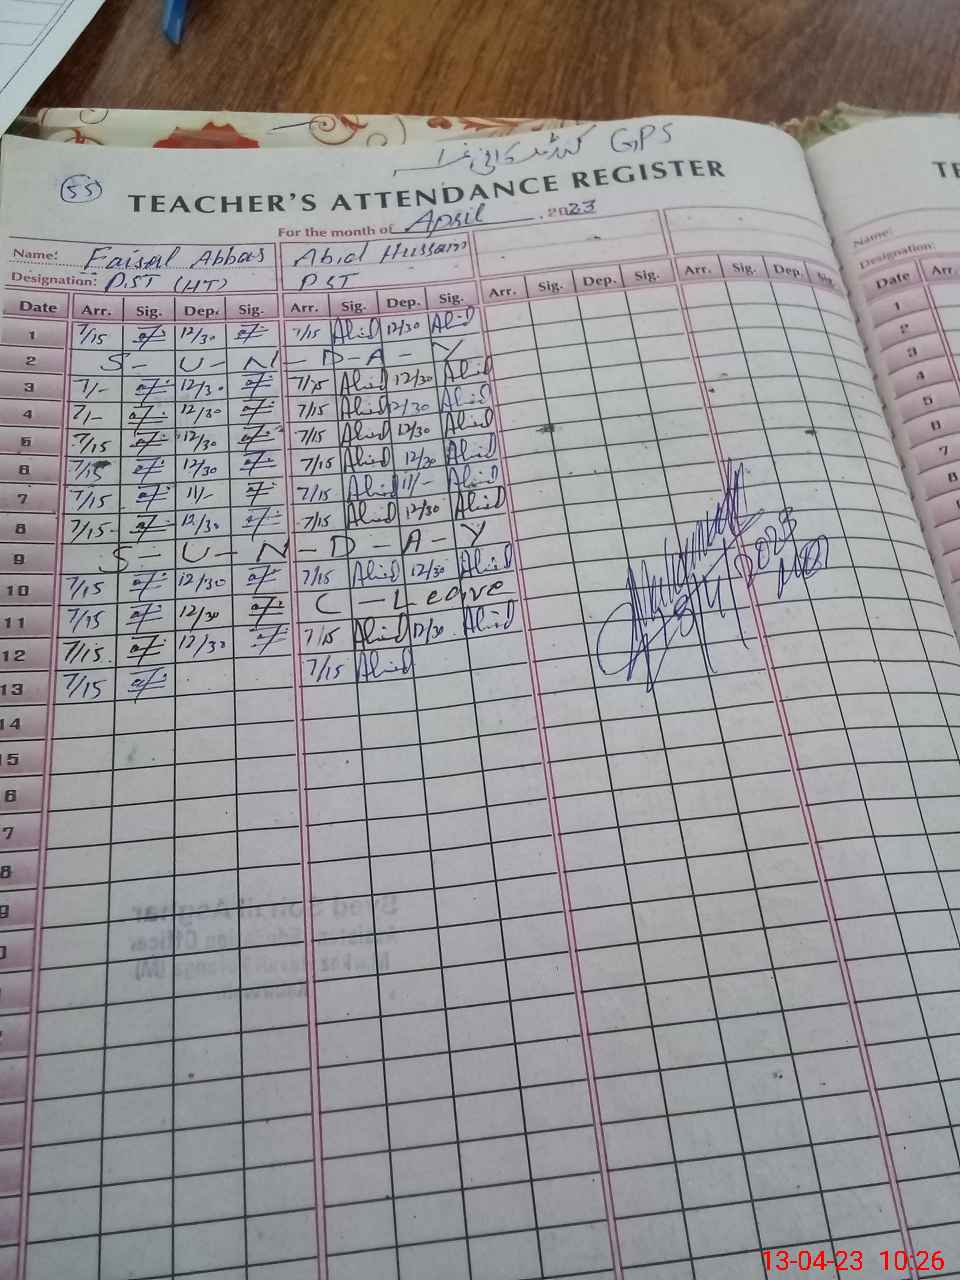 GPS
55
TEACHER'S ATTENDANCE REGISTER
For the month of April 2023
Name: Faisal Abbas Abid Hussain
Designation: P.ST (HT) PST
Date Arr. Sig. Dep. Sig. Arr. Sig. Dep. Sig. Arr. Sig. Dep. Sig. Arr. Sig. Dep. Sig.
1 7/15 12/30 7/15 Abid 12/30 Abid
2 S - U - N - D - A - Y
3 7/- 12/30 7/15 Abid 12/30 Abid
4 7/- 12/30 7/15 Abid 12/30 Abid
5 7/15 12/30 7/15 Abid 12/30 Abid
6 7/15 12/30 7/15 Abid 12/30 Abid
7 7/15 11/- 7/15 Abid 11/- Abid
8 7/15 12/30 7/15 Abid 12/30 Abid
9 S - U - N - D - A - Y
10 7/15 12/30 7/15 Abid 12/30 Abid
11 7/15 12/30 C - Leave
12 7/15 12/30 7/15 Abid 12/30 Abid
13 7/15 7/15 Abid
14
15
6
7
8
9
0
Name:
Designation:
Date Arr.
1
2
3
4
5
6
7
8
13-04-23 10:26